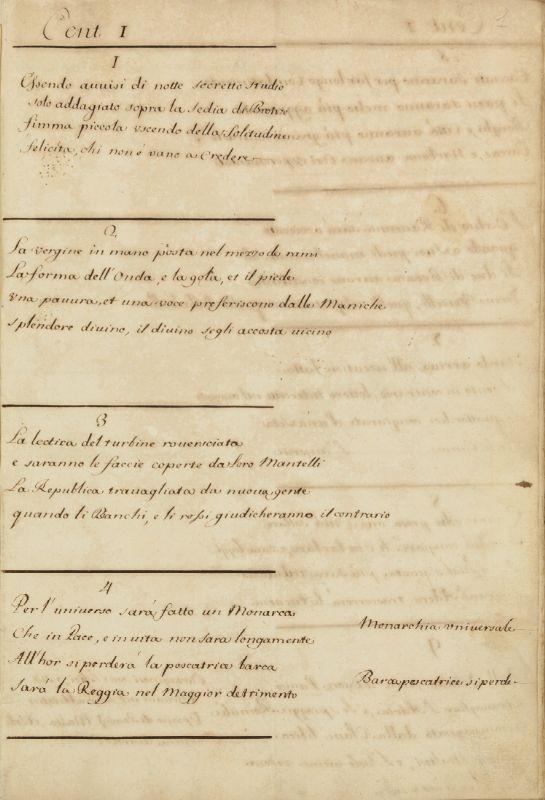 Cent. 1
1
Essendo auuisi di notte secretto studio
solo addagiato sopra la sedia di Bronzo
fimma piccola vscendo della solitudine
felicita, chi non é vano a Credere
2
La vergine in mano posta nel mezzo de rami
La forma dell'Onda, e la gota, et il piede
vna pauura, et una voce preferiscono dalle Maniche
splendore diuino, il diuino segli accosta uicino
3
La lectica del turbine rouersciata
e saranno le faccie coperte da loro Mantelli
La Republica trauagliata da nuoua gente
quando li Bianchi, e li rossi giudicheranno il contrario
4
Per l'uniuerso sará fatto un Monarca
Che in Pace, e in uita non sara longamente
All'hor si perderá la pescatrice barca
sará la Reggia nel Maggior detrimento
Monarchia vniuersale
Barca pescatrice si perde